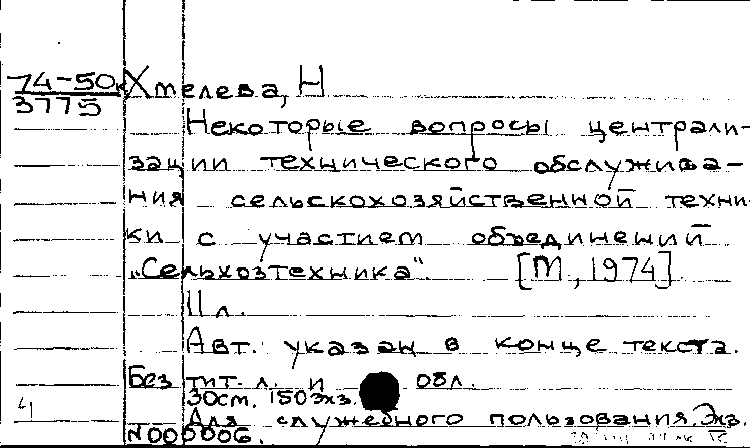 74-50к Хмелева, Н
3775
Некоторые вопросы централи-
зации технического обслужива-
ния сельскохозяйственной техни-
ки с участием объединений
„Сельхозтехника“. [М, 1974]
11 л.
Авт. указан в конце текста.
Без тит. л. и обл.
30см. 150экз.
Для служебного пользования. Экз.
N000006.